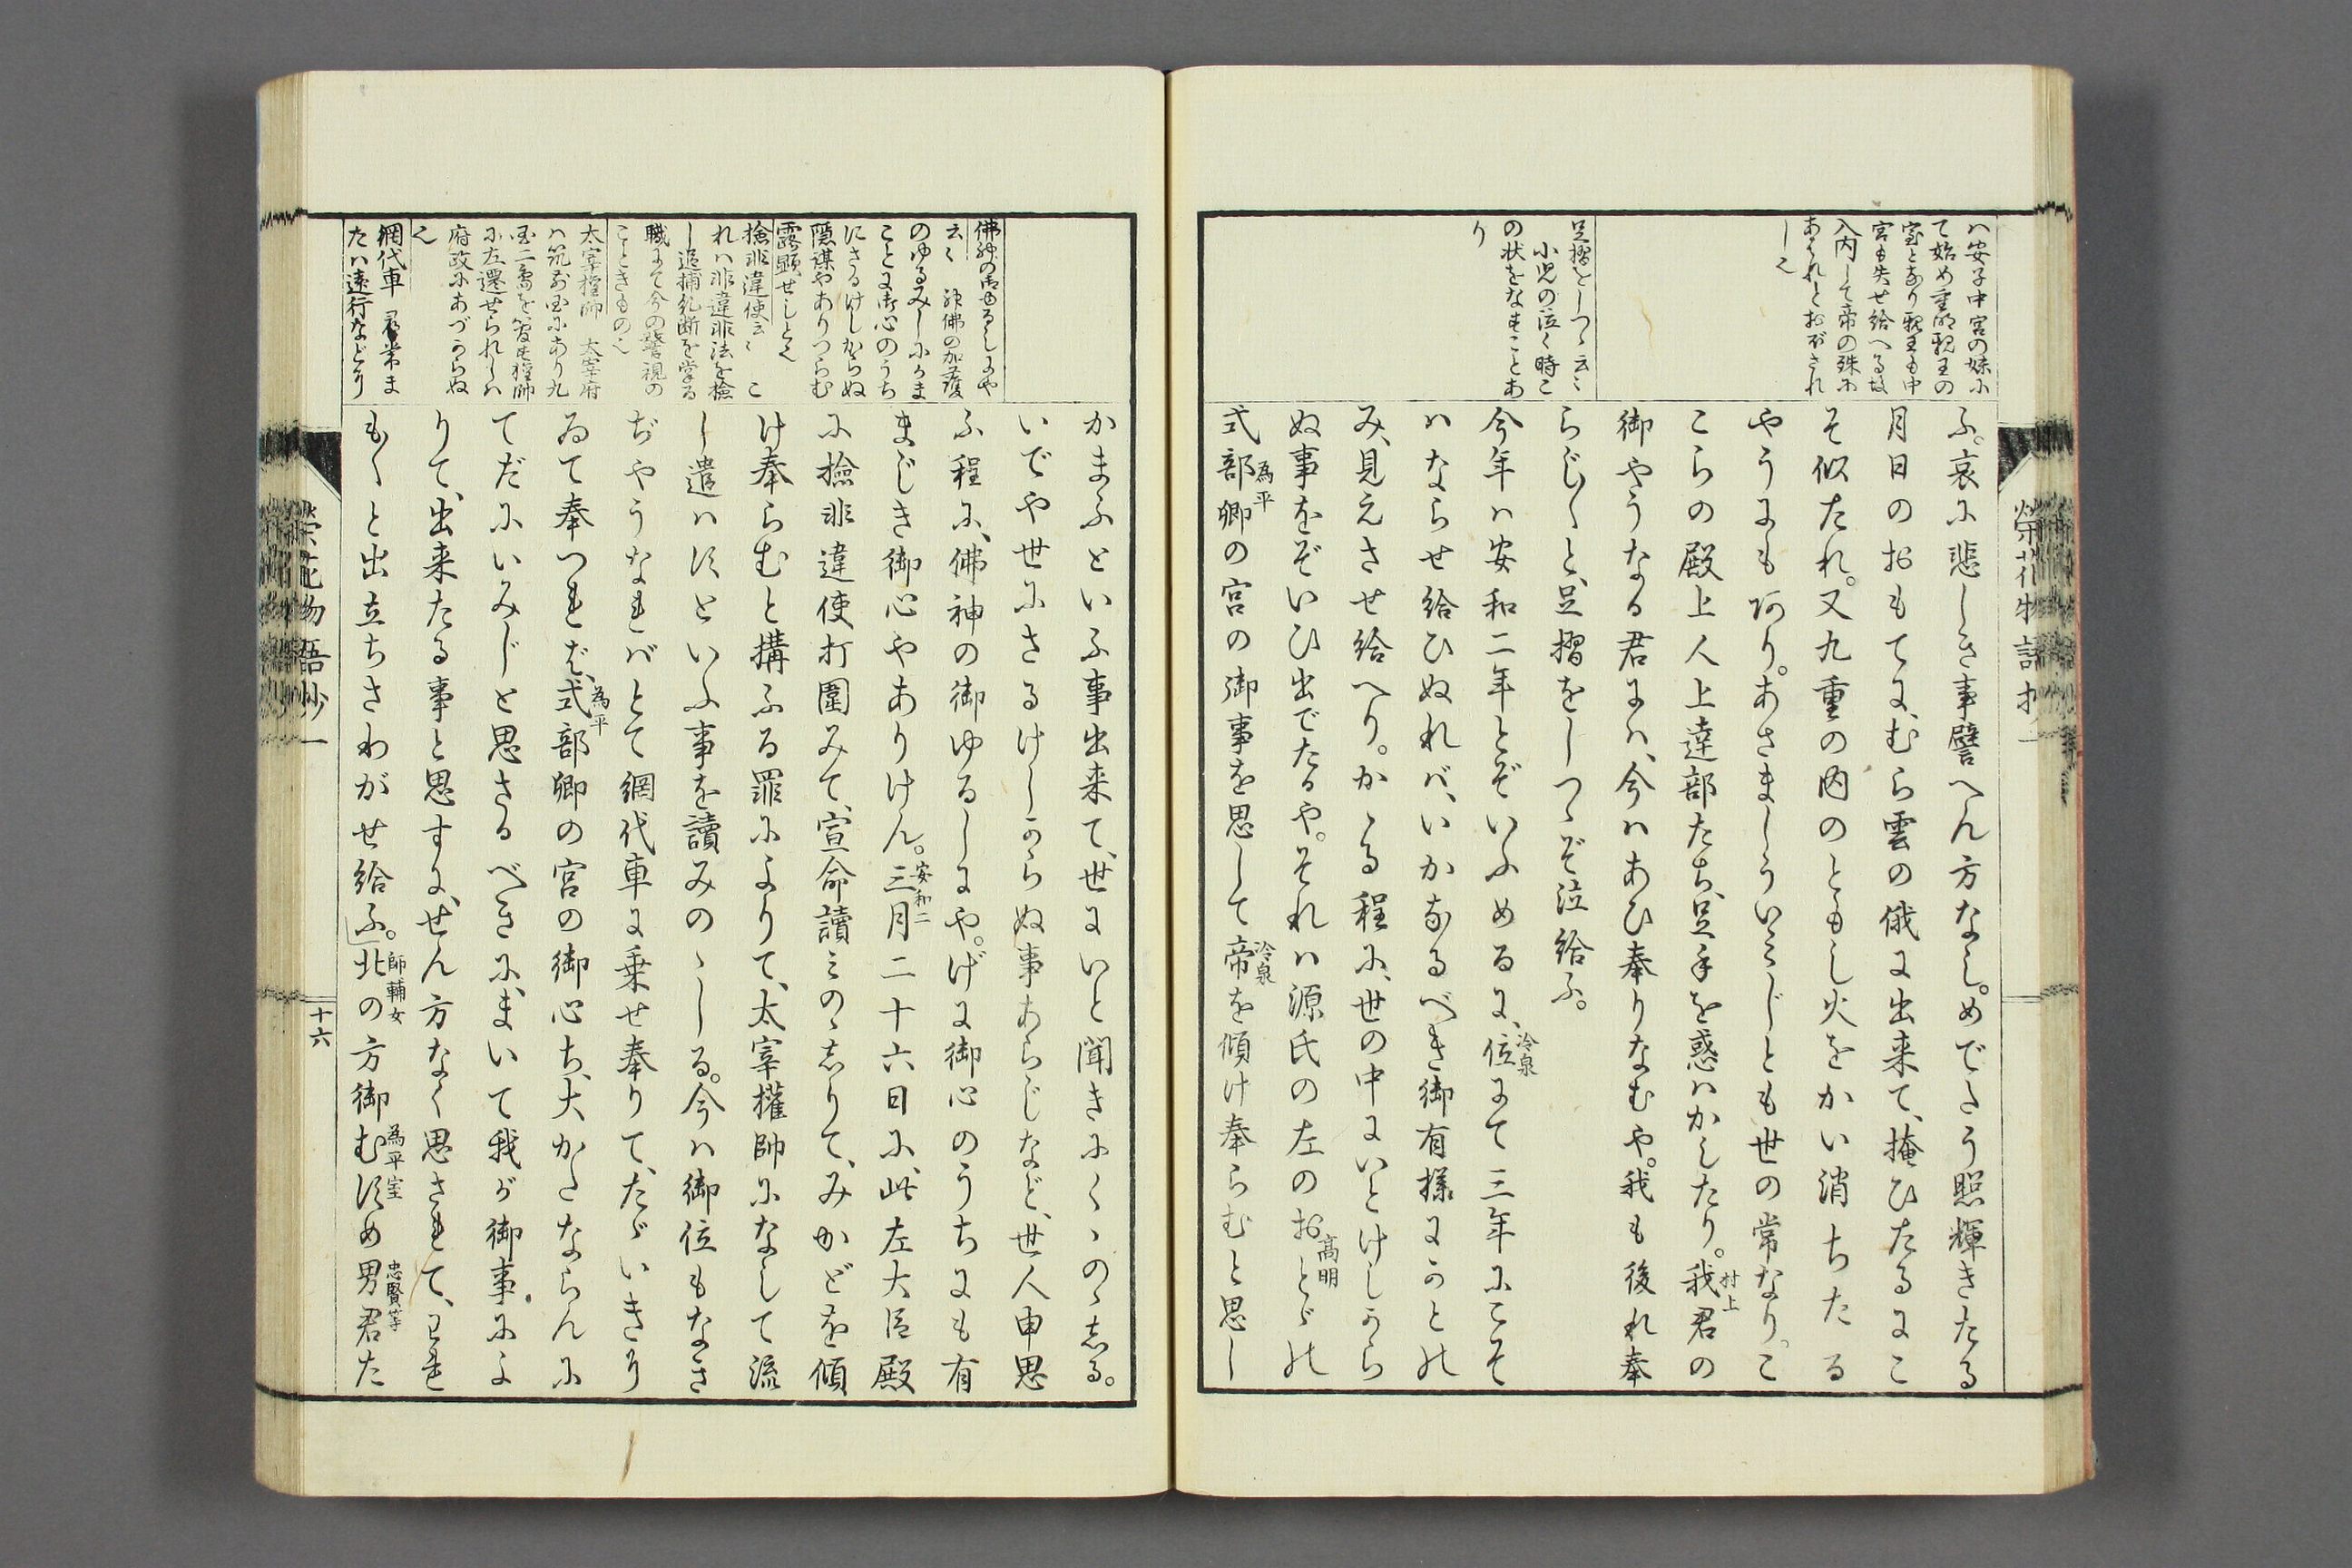 ハ安子中宮の妹に
て始め重明親王の
室となり親王も中
宮も失せ給へる故
入内して帝の殊に
あはれとおぼされ
し也
足摺をしつゝ云々
小児の泣く時こ
の状をなすことあ
り
ふ。哀に悲しき事譬へん方なし。めでたう照輝きたる
月日のおもてに、むら雲の俄に出来て、掩ひたるにこ
そ似たれ。又九重の内のともし火をかい消ちたる
やうにも阿り。あさましういみじとも世の常なり。こ
こらの殿上人上達部たち、足手を惑はかしたり。我君の
村上
御やうなる君にハ、今ハあひ奉りなむや。我も後れ奉
らじ〱と、足摺をしつゝぞ泣給ふ。
今年ハ安和二年とぞいふめるに、位にて三年にこそ
冷泉
ハならせ給ひぬれバ、いかなるべき御有様にかとの
み、見えさせ給へり。かゝる程に、世の中にいとけしから
ぬ事をぞいひ出でたるや。それハ源氏の左のおとゞの
高明
式部卿の宮の御事を思して帝を傾け奉らむと思し
為平
冷泉
榮花物語抄一
佛神の御ゆるしにや
云々 神佛の加護
のゆるみしにかま
ことに御心のうち
にさるけしからぬ
隠謀やありつらむ
露顕せしと也
撿非違使云々 こ
れハ非違非法を檢
し追捕糺断を掌る
職にて今の警視の
ごときもの也
太宰権帥 太宰府
ハ筑前国にあり九
国二島を管す権帥
に左遷せられしハ
府政にあづからぬ
也
網代車 尋常ま
たハ遠行などり
かまふといふ事出来て、世にいと聞きにくゝのゝしる。
いでや世にさるけしからぬ事あらじなど、世人申思
ふ程に、佛神の御ゆるしにや。げに御心のうちにも有
まじき御心やありけん。三月二十六日に、此左大臣殿
安和二
に撿非違使打圍みて、宣命讀みのゝしりて、みかどを傾
け奉らむと構ふる罪によりて、太宰權帥になして流
し遣ハすといふ事を讀みのゝしる。今ハ御位もなき
ぢやうなれバとて網代車に乗せ奉りて、たゞいきり
ゐて奉つれば、式部卿の宮の御心ち、大かたならんに
為平
てだにいみじと思さるべきに、まいて我が御事によ
りて、出来たる事と思すに、せん方なく思されて、われ
も〱と出立ちさわがせ給ふ。」北の方御むすめ男君た
師輔女
為平室
忠賢等
榮花物語抄一
十六